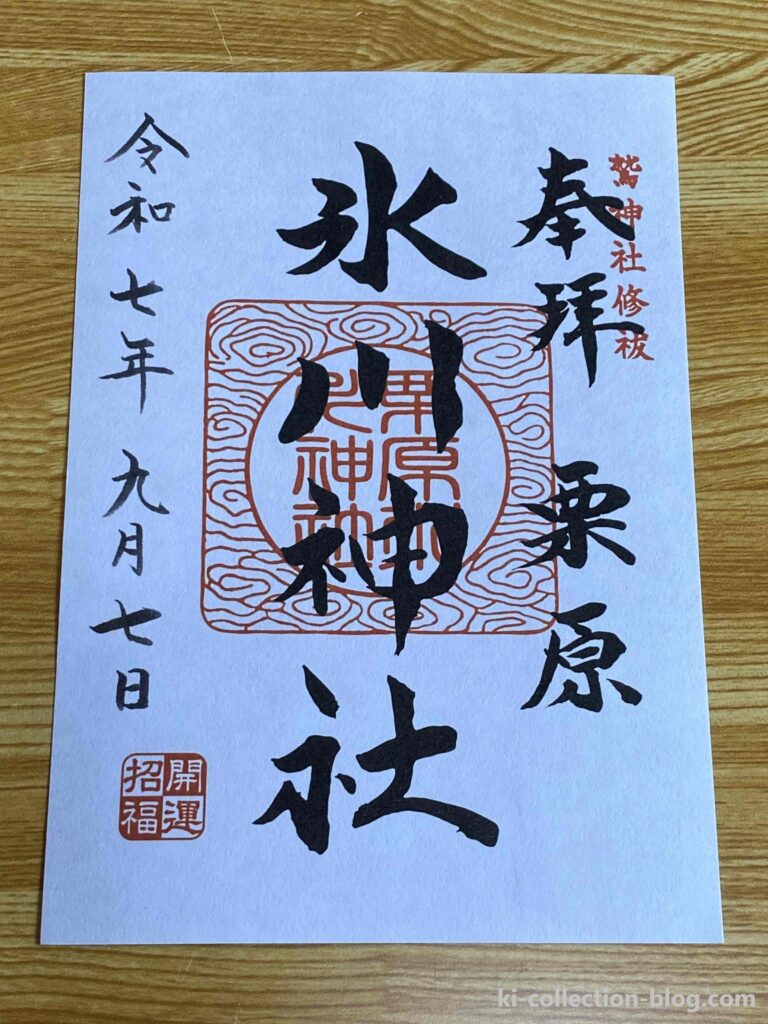 鷲神社修祓
奉拝 栗原
氷川神社
栗原氷川神社
令和七年九月七日
開運招福
ki-collection-blog.com